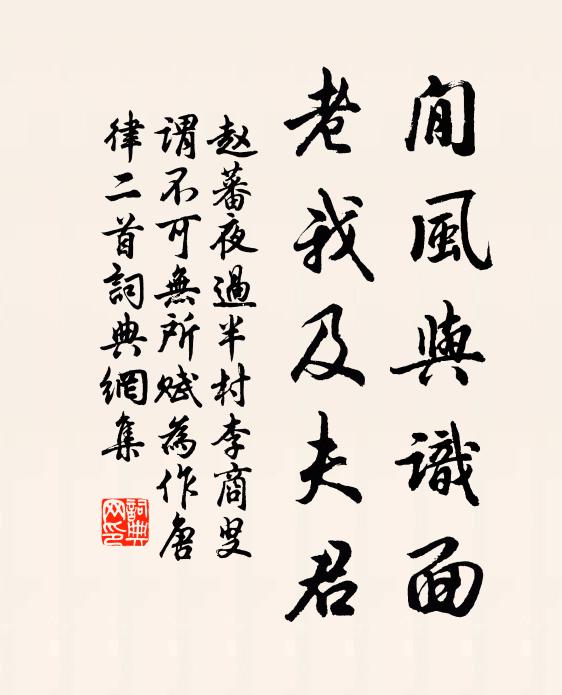 聞風與識面
老我及夫君
赵蕃夜過半村李商叟
謂不可無所賦為作唐
律二首詞典網集
詞典
网印